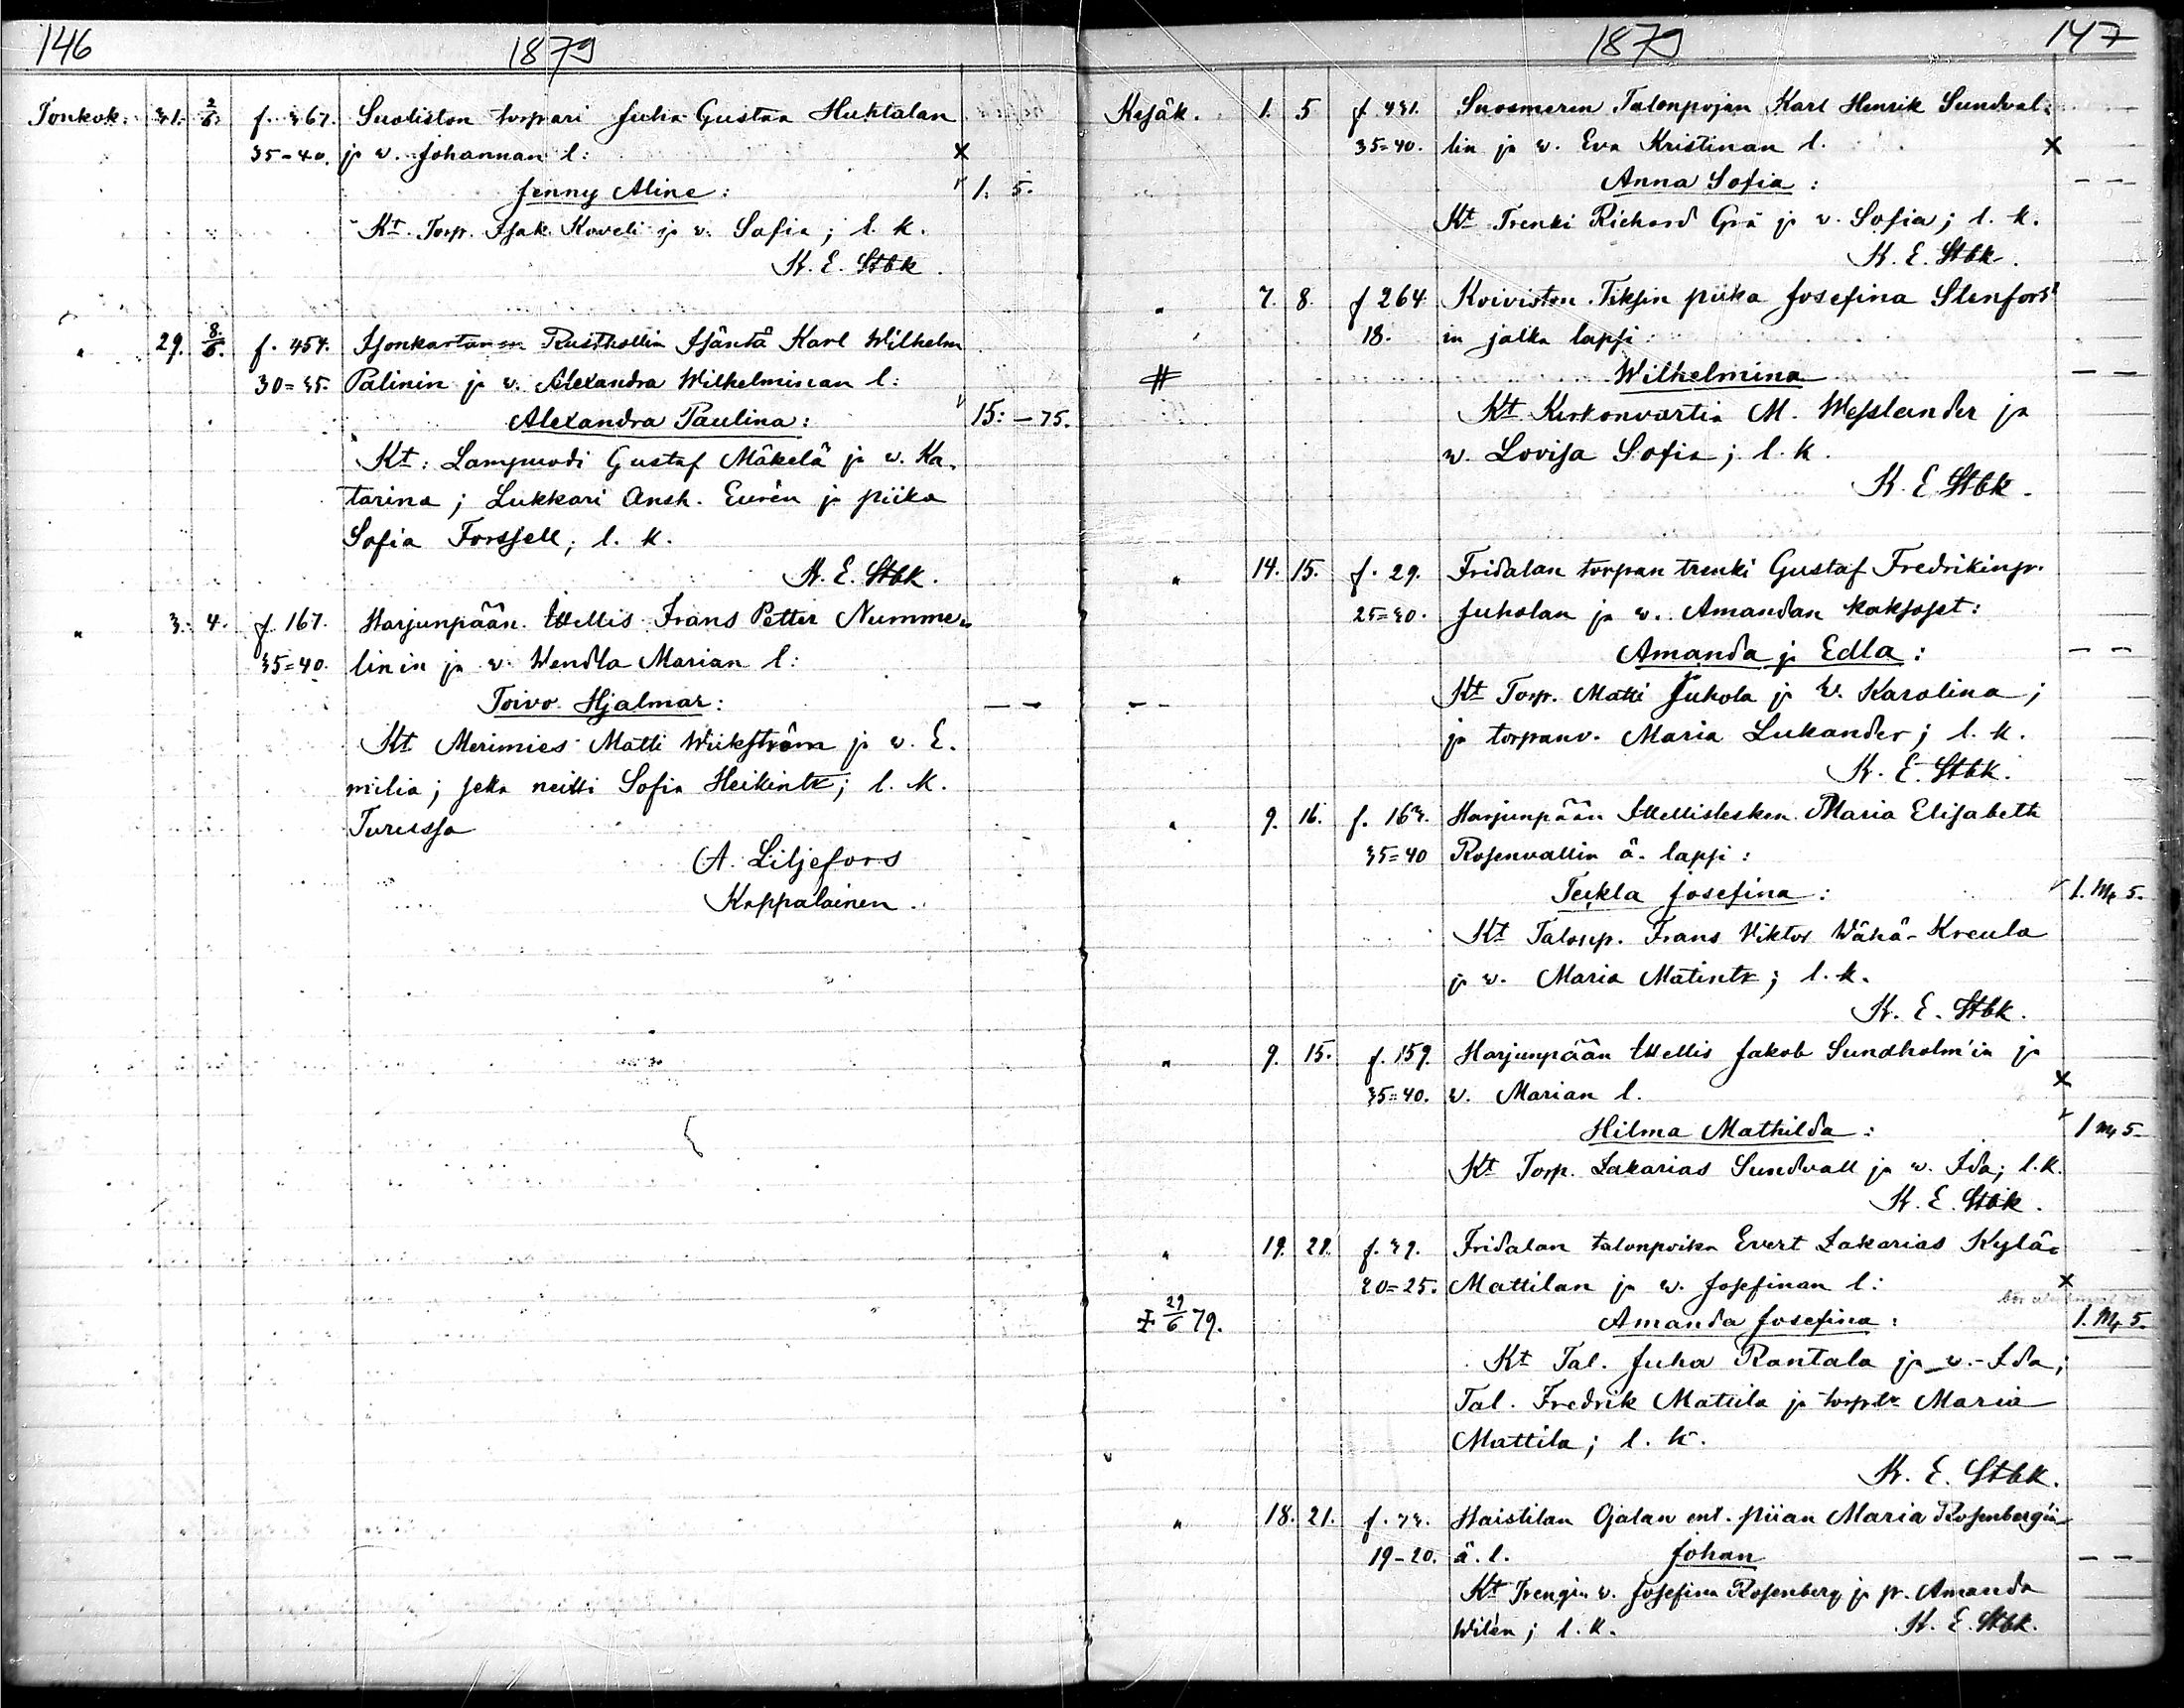 146
1879
Toukok. 31. 2/6. f. 367. Suoliston torpari Juha Gustaa Huhtalan
35-40. ja w. Johannan l: x
Jenny Aline: 1. 5.
Kt. Torp. Isak Koveli ja w. Sofia; l. k.
K. E. Stbk.
" 29. 8/6. f. 454. Isonkartanon Rusthollin Isäntä Karl Wilhelm
30=35. Palinin ja w. Alexandra Wilhelminan l:
Alexandra Paulina: 15: - 75.
Kt: Lampuodi Gustaf Mäkelä ja w. Ka-
tarina; Lukkari Ansh. Eurén ja piika
Sofia Forssell; l. k.
K. E. Stbk.
" 3. 4. f. 167. Harjunpään Itellis Frans Petter Numme-
35=40. linin ja w. Wendla Marian l:
Toivo Hjalmar: — —
Kt Merimies Matti Wiikström ja w. E.
milia; seka neitti Sofia Heikintr; l. k.
Turussa
A. Liljefors
Kappalainen.
1879
147
Kesäk. 1. 5 f. 431. Suosmeren Talonpojan Karl Henrik Sundval-
35=40. lin ja w. Eva Kristinan l. x
Anna Sofia: — —
Kt Trenki Richard Grä ja w. Sofia; l. k.
K. E. Stbk.
" 7. 8. f 264 Koiviston Tiksin piika Josefina Stenfors'
18. in jalka lapsi:
# Wilhelmina — —
Kt Kirkonvartia M. Wesslander ja
w. Lovisa Sofia; l. k.
K. E. Stbk.
" 14. 15. f. 29. Fridalan torpan trenki Gustaf Fredrikinpr.
25=30. Juholan ja w. Amandan kaksoset:
Amanda ja Edla: — —
— — Kt Torp. Matti Juhola ja w. Karolina;
ja torpanv. Maria Lukander; l. k.
K. E. Stbk.
" 9. 16. f. 163. Harjunpään Itellislesken Maria Elisabeth
35=40 Rosenvallin ä. lapsi:
Teckla Josefina: 1. Mk 5.
Kt Talonp. Frans Viktor Wähä-Kreula
ja w. Maria Matintr; l. k.
K. E. Stbk.
" 9. 15. f. 159. Harjunpään Itellis Jakob Sundholm'in ja
35=40. w. Marian l. x
Hilma Mathilda: 1 Mk 5
Kt Torp. Zakarias Sundvall ja w. Ida; l. k.
K. E. Stbk.
" 19. 21. f. 39. Fridalan talonpoika Evert Zakarias Kylä-
20=25. Mattilan ja w. Josefinan l: x
‡ 29/6 79. Amanda Josefina: 1. Mk 5.
Kt Tal. Juha Rantala ja w. Ida;
Tal. Fredrik Mattila ja torptr Maria
Mattila; l. k.
K. E. Stbk.
" 18. 21. f. 73. Haistilan Ojalan ent. piian Maria Rosenberg'in
19-20. ä. l. Johan — —
Kt Trengin w. Josefina Rosenberg ja p. Amanda
Wilén; l. k. K. E. Stbk.